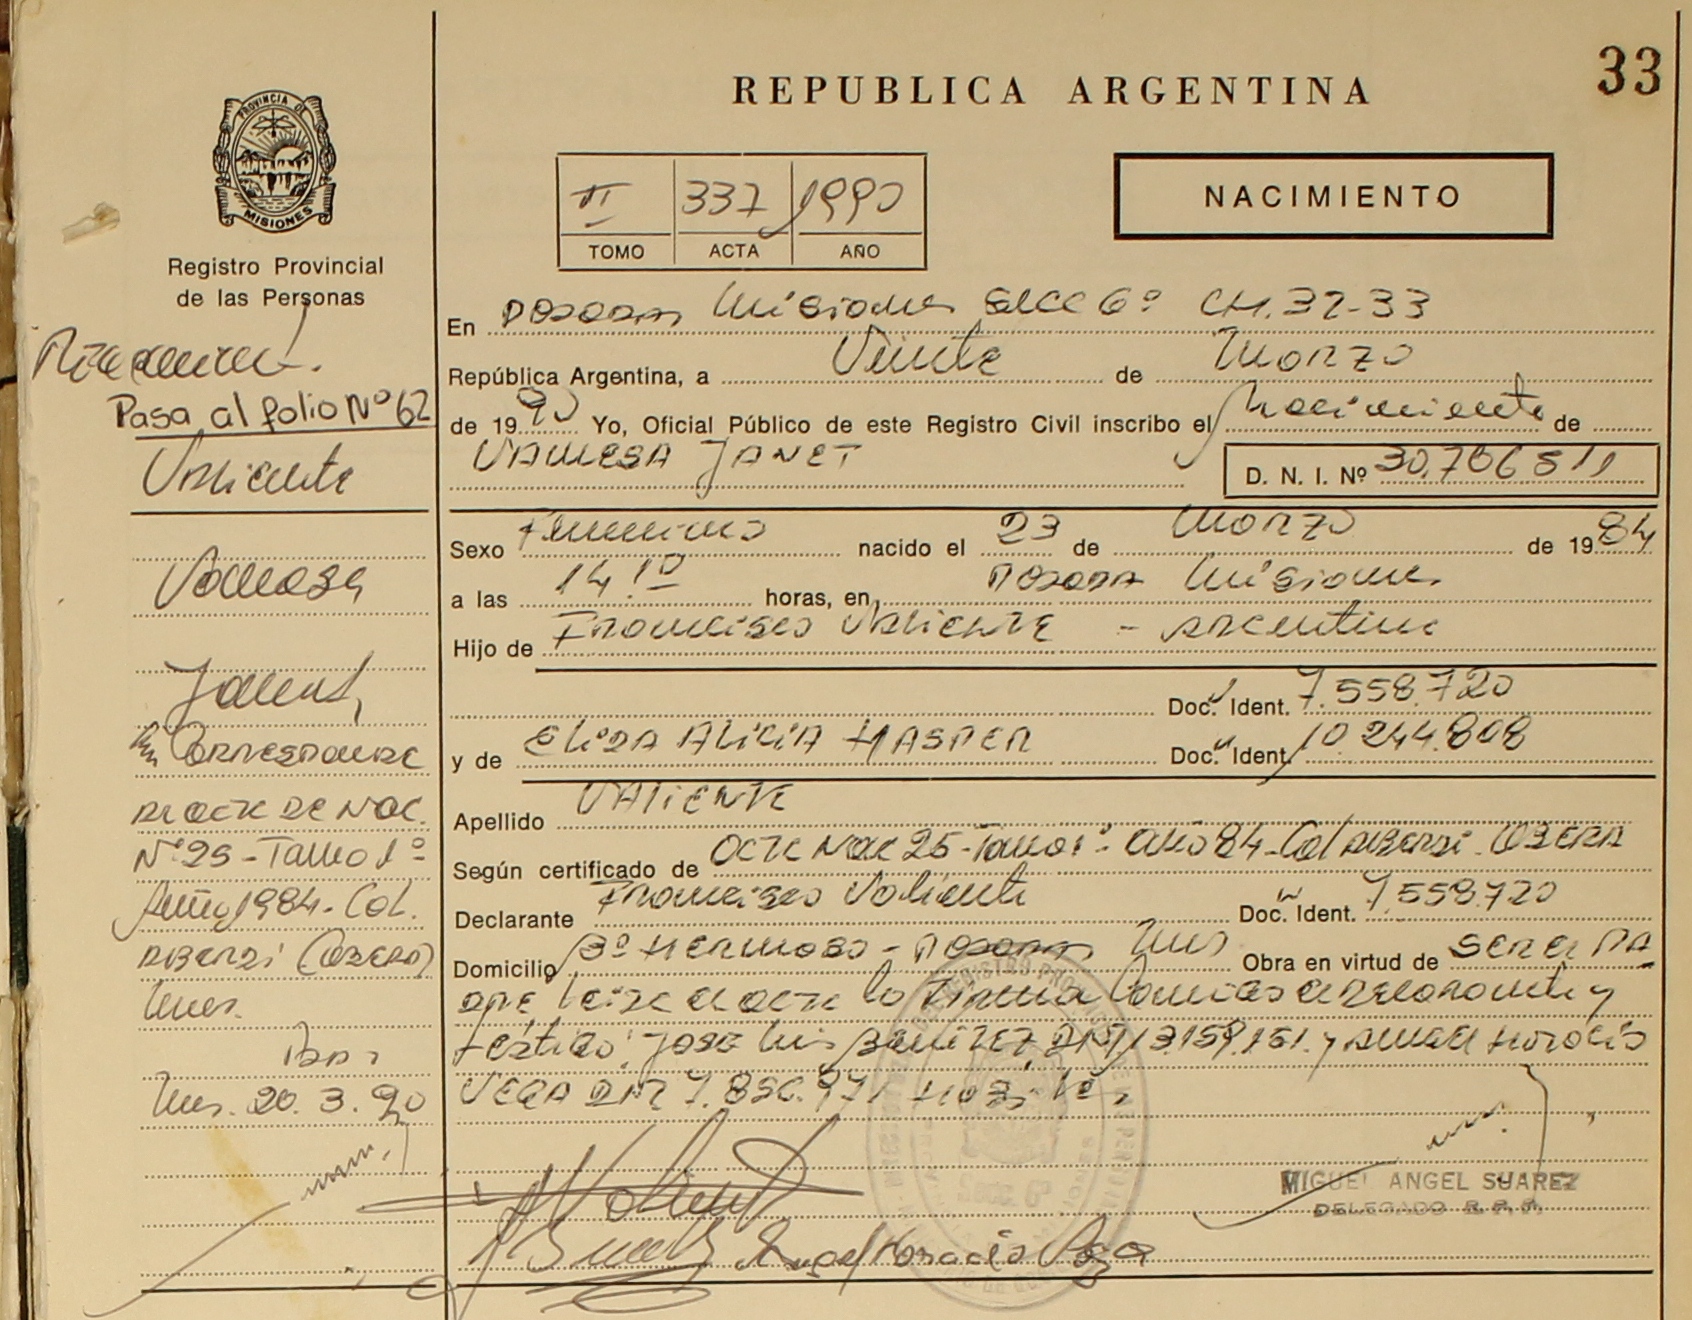 33
REPUBLICA ARGENTINA
PROVINCIA DE
MISIONES
Registro Provincial
de las Personas
II 337 1990
TOMO ACTA AÑO
NACIMIENTO
Pasa al folio Nº 62
Valiente
Vanesa
Janet
Corresponde
acta de Nac.
Nº 25 - Tomo 1º
Año 1984 - Col.
Alberdi (Oberá)
Mnes.
Pdas
Mnes. 20. 3. 90
En Posadas Misiones Secc 6º CH. 32-33
República Argentina, a Veinte de Marzo
de 1990 Yo, Oficial Público de este Registro Civil inscribo el Nacimiento de
VANESA JANET D. N. I. Nº 30.766511
Sexo Femenino nacido el 23 de Marzo de 1984
a las 14.10 horas, en Posadas Misiones
Hijo de Francisco Valiente - Argentino
Doc. Ident. 7.558.720
y de Eliza Alicia HASPER Doc. Ident. 10.244.808
Apellido VALIENTE
Según certificado de Acta Nac 25 - Tomo 1º - Año 84 - Col Alberdi - OBERA
Declarante Francisco Valiente Doc. Ident. 7.558.720
Domicilio Bº Hermoso - Posadas Mnes Obra en virtud de ser el PA
dre leída el acta la firman conmigo el declarante y
testigos: José Luis DNI 13.159.151 y Angel Horacio
VEGA DNI 7.8
MIGUEL ANGEL SUAREZ
DELEGADO R.P.P.
Angel Horacio Vega